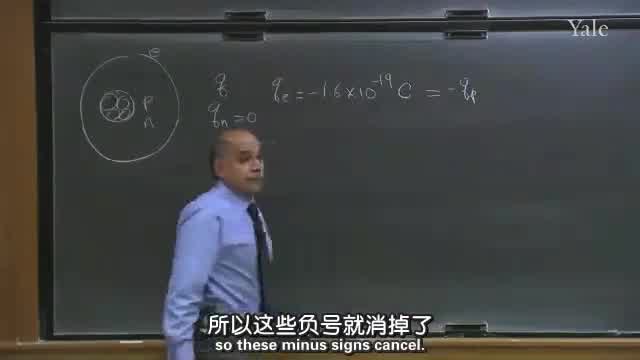 Yale
e
q qₑ = -1.6 × 10⁻¹⁹ C = -qₚ
p
n qₙ = 0
所以这些负号就消掉了
so these minus signs cancel.